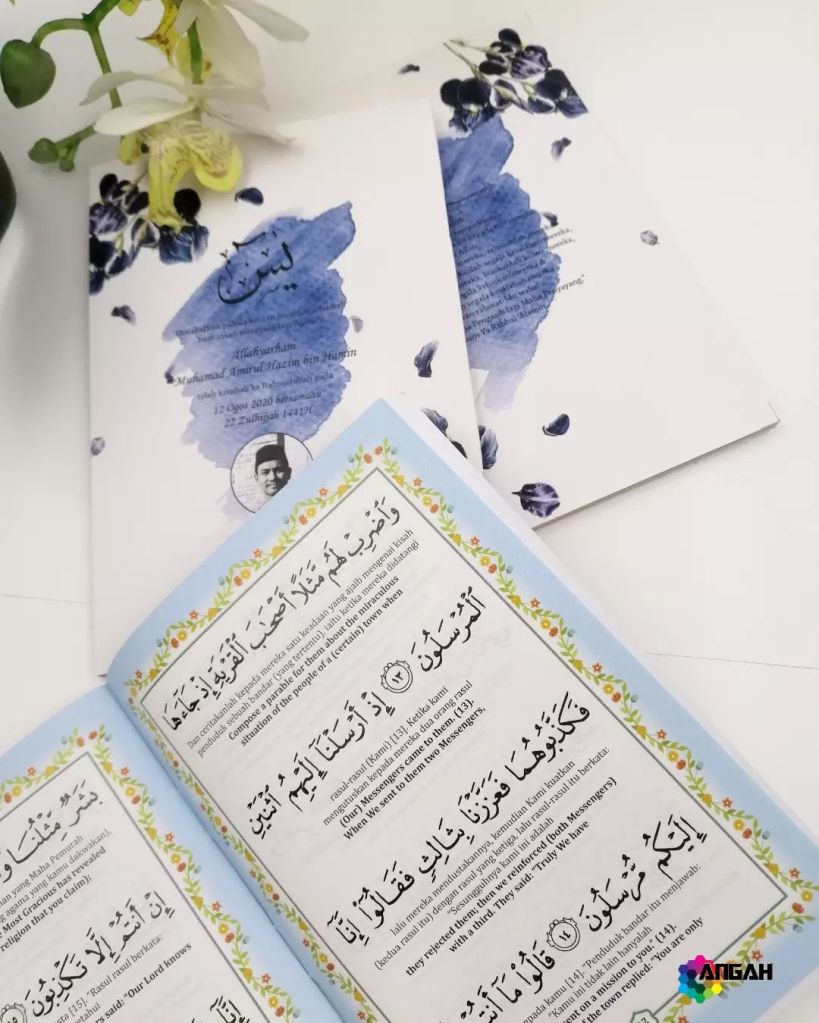 يس
Allahyarham
Muhamad Amirul Hazim bin Hamin
telah kembali ke Rahmatullah pada
12 Ogos 2020 bersamaan
22 Zulhijjah 1441H
mereka,
Pengasih lagi Maha Penyayang,
Ya Rabbal 'Alamin
وَٱضْرِبْ لَهُم مَّثَلًا أَصْحَٰبَ ٱلْقَرْيَةِ إِذْ جَآءَهَا
Dan ceritakanlah kepada mereka satu keadaan yang ajaib mengenai kisah
penduduk sebuah bandar (yang tertentu), iaitu ketika mereka didatangi
Compose a parable for them about the miraculous
situation of the people of a (certain) town when
ٱلْمُرْسَلُونَ ١٣ إِذْ أَرْسَلْنَآ إِلَيْهِمُ ٱثْنَيْنِ
rasul-rasul (Kami) [13]. Ketika kami
mengutuskan kepada mereka dua orang rasul
(Our) Messengers came to them. (13).
When We sent to them two Messengers,
فَكَذَّبُوهُمَا فَعَزَّزْنَا بِثَالِثٍ فَقَالُوٓا۟ إِنَّآ
lalu mereka mendustakannya, kemudian Kami kuatkan
(kedua rasul itu) dengan rasul yang ketiga, lalu rasul-rasul itu berkata:
"Sesungguhnya kami ini adalah
they rejected them; then we reinforced (both Messengers)
with a third. They said: "Truly We have
إِلَيْكُم مُّرْسَلُونَ ١٤ قَالُوا۟ مَآ أَنتُمْ
kepada kamu [14]. "Penduduk bandar itu menjawab:
"Kamu ini tidak lain hanyalah
sent on a mission to you." (14).
of the town replied: "You are only
بَشَرٌ مِّثْلُنَا وَ
yang Maha Pemurah
agama yang kamu dakwakan),
Most Gracious has revealed
religion that you claim);
إِنْ أَنتُمْ إِلَّا تَكْذِبُونَ ١٥
[15]. "Rasul rasul berkata:
said: "Our Lord knows
ANGAH